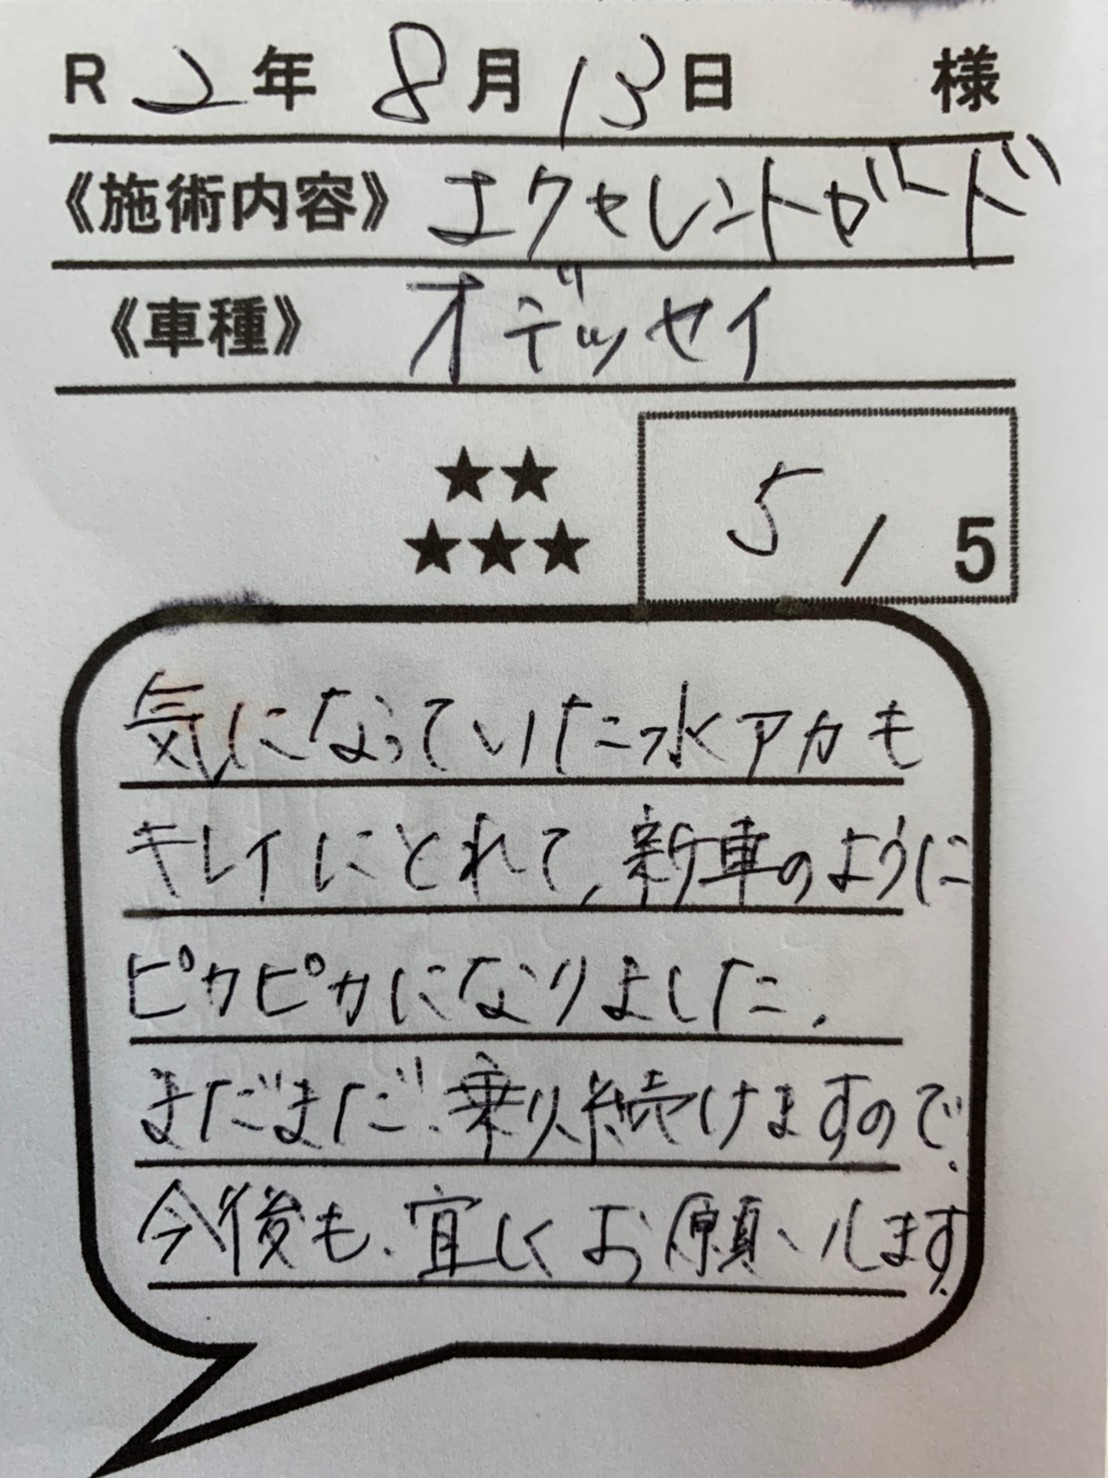 R 2年 8月13日 様
《施術内容》 エクセレントガード
《車種》 オデッセイ
★★
★★★
5 / 5
気になっていた水アカも
キレイにとれて、新車のように
ピカピカになりました。
まだまだ、乗り続けますので、
今後も、宜しくお願いします。